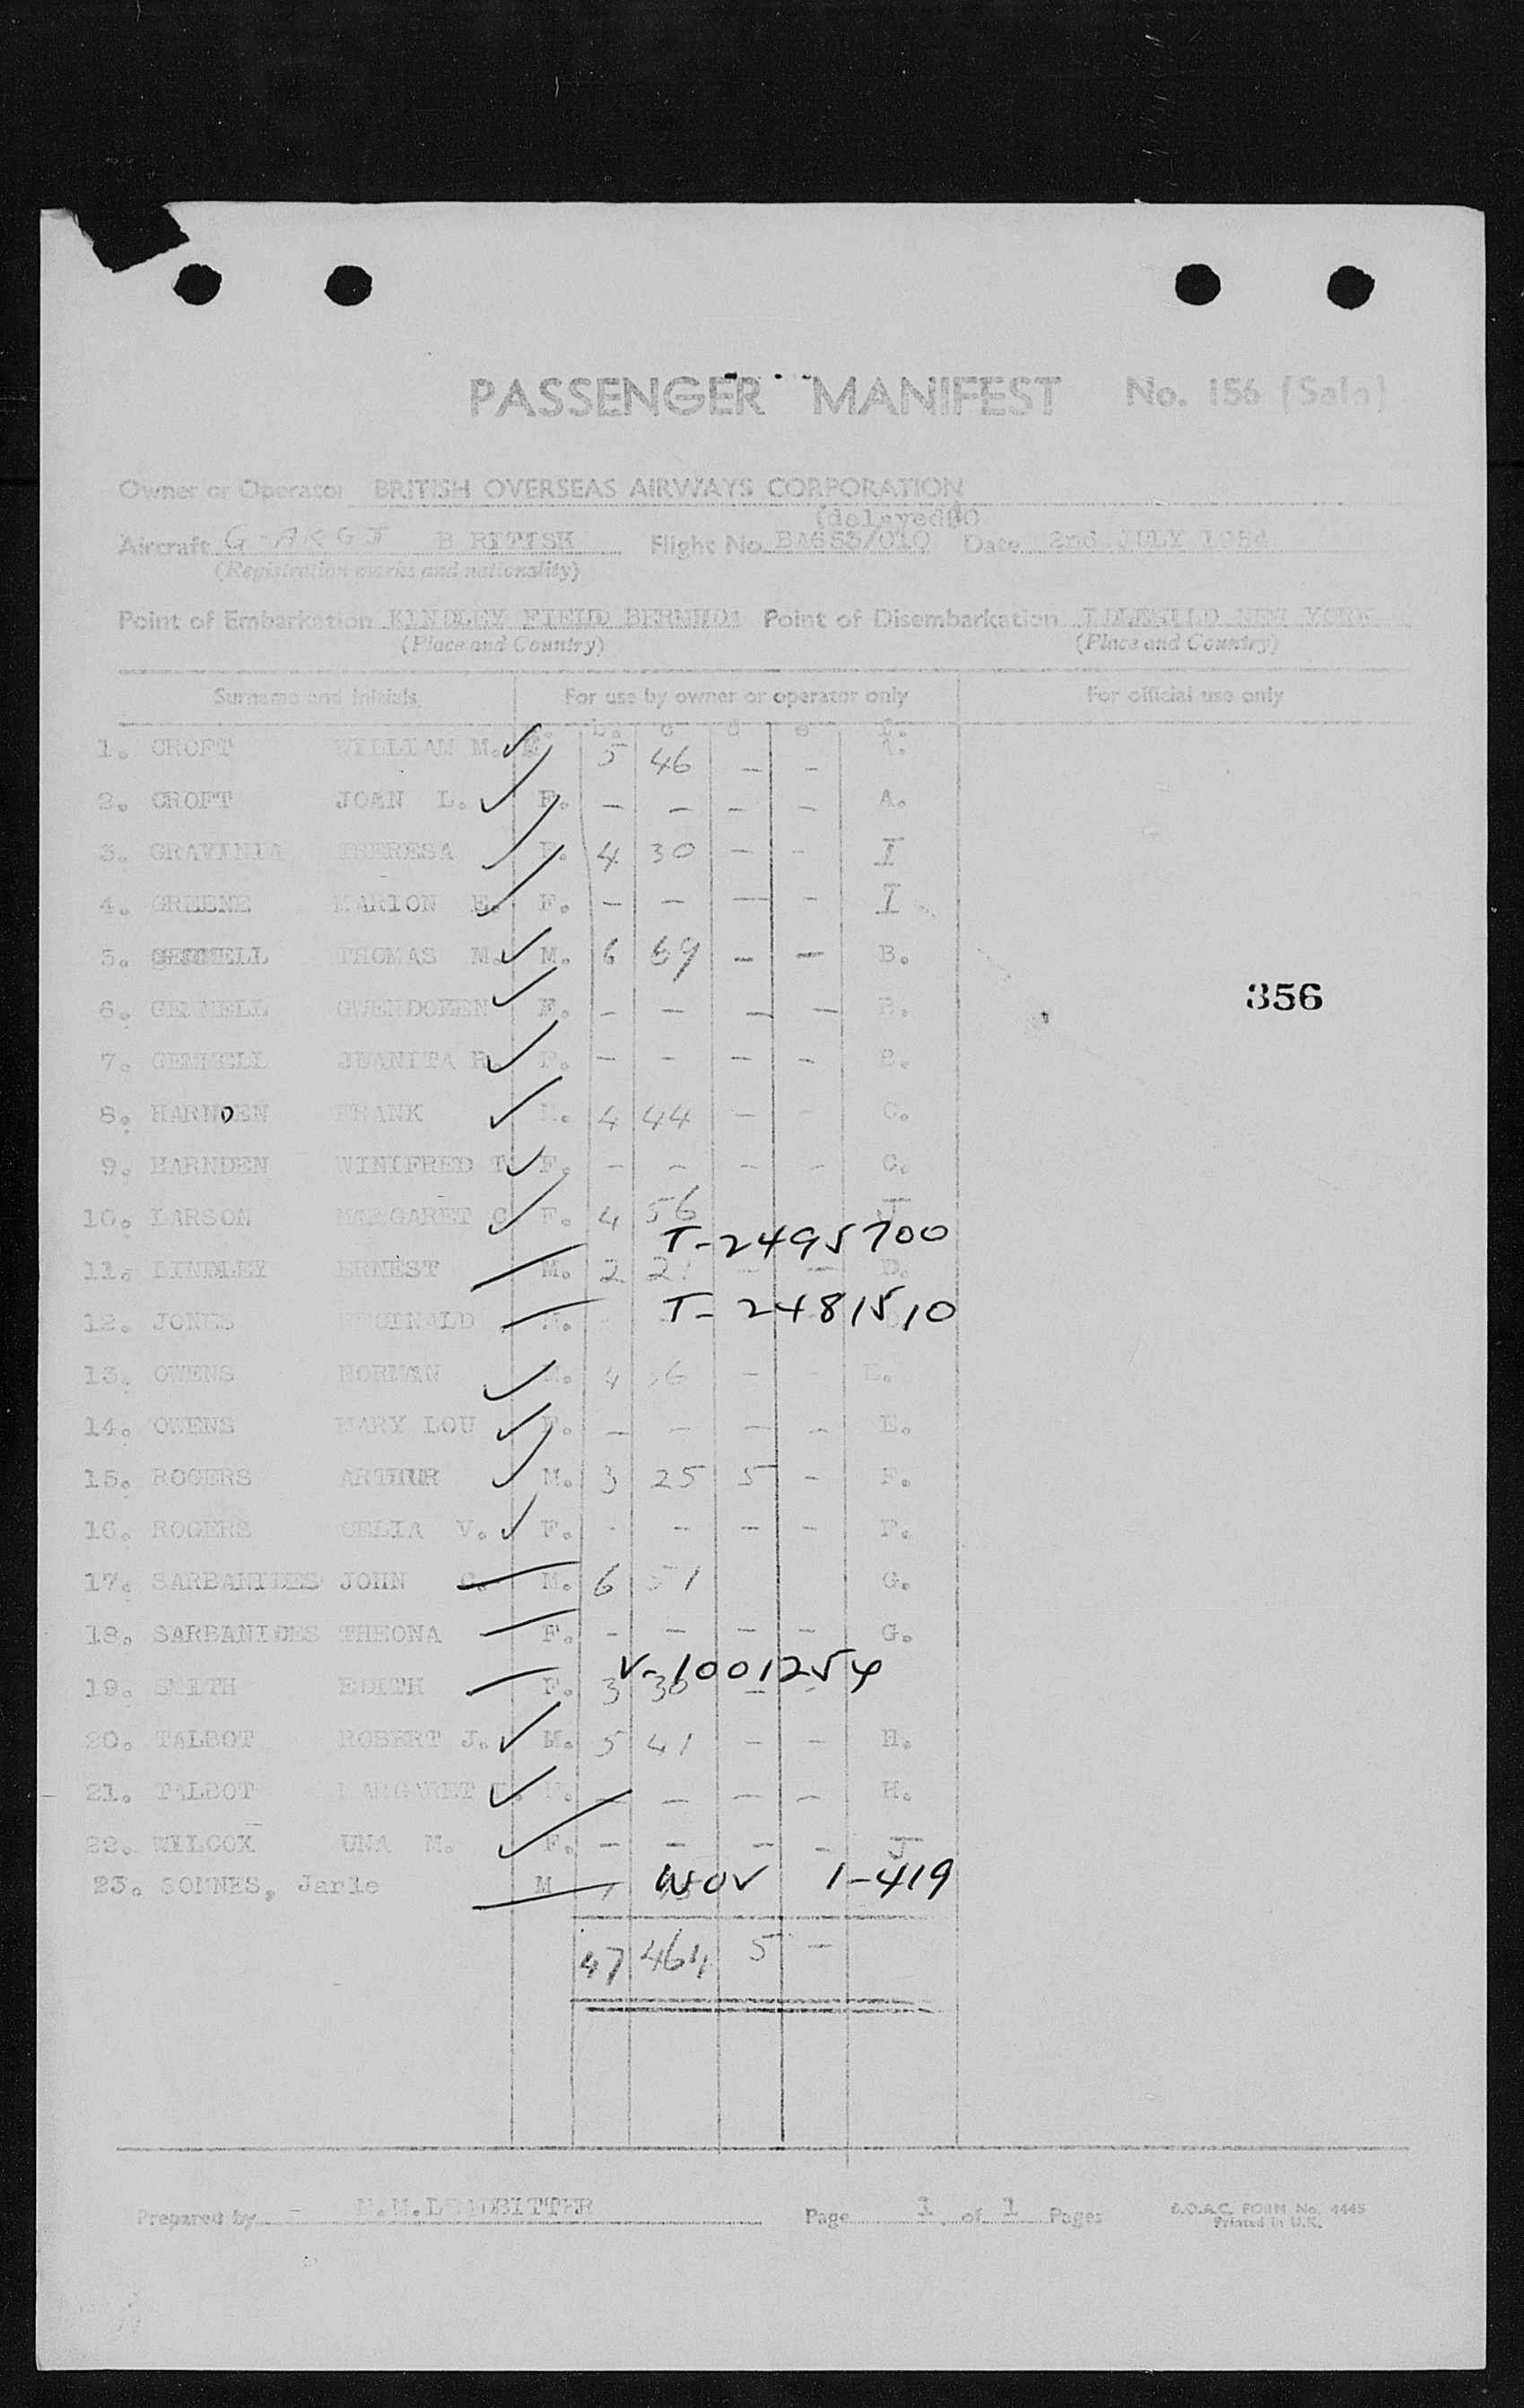 PASSENGER MANIFEST No. 156 (Sala)
Owner or Operator BRITISH OVERSEAS AIRWAYS CORPORATION
(delayed)
Aircraft G-AKGJ BRITISH Flight No. BA653/010 Date 2nd JULY 1954
(Registration marks and nationality)
Point of Embarkation KINDLEY FIELD Point of Disembarkation IDLEWILD NEW YORK
(Place and Country) (Place and Country)
Surname and Initials For use by owner or operator only For official use only
b. c d e f.
1. CROFT WILLIAM M. 5 46 - - A.
2. CROFT JOAN L. F. - - - - A.
3. GRAVINIA THERESA F. 4 30 - - I
4. GREENE MARION E. F. - - - - I
5. GEMMELL THOMAS M. M. 6 69 - - B.
356
6. GEMMELL F. - - - - B.
7. GEMMELL JUANITA R. F. - - - - B.
8. HARNDEN FRANK M. 4 44 - - C.
9. HARNDEN WINIFRED T. F. - - - - C.
10. LARSON MARGARET C F. 4 56 J
T-2495700
11. LINDLEY ERNEST M. 2 21 - - D.
T-2481510
12. JONES REGINALD M.
13. OWENS NORMAN M. 4 - - E.
14. OWENS MARY LOU F. - - - - E.
15. ROGERS ARTHUR M. 3 25 5 - F.
16. ROGERS CELIA V. F. - - - - F.
17. SARBANIDES JOHN C. M. 6 51 G.
18. SARBANIDES THEONA F. - - - - G.
V-1001254
19. SMITH EDITH F. 3 30 - -
20. TALBOT ROBERT J. M. 5 41 - - H.
21. TALBOT MARGARET F. - - - - H.
22. WILCOX UNA M. F. - - - - J
23. SOMNES, Jarle M 1-419
47 464 5 -
Prepared by Page 1 of 1 Pages B.O.A.C. FORM No. 4445
Printed in U.K.